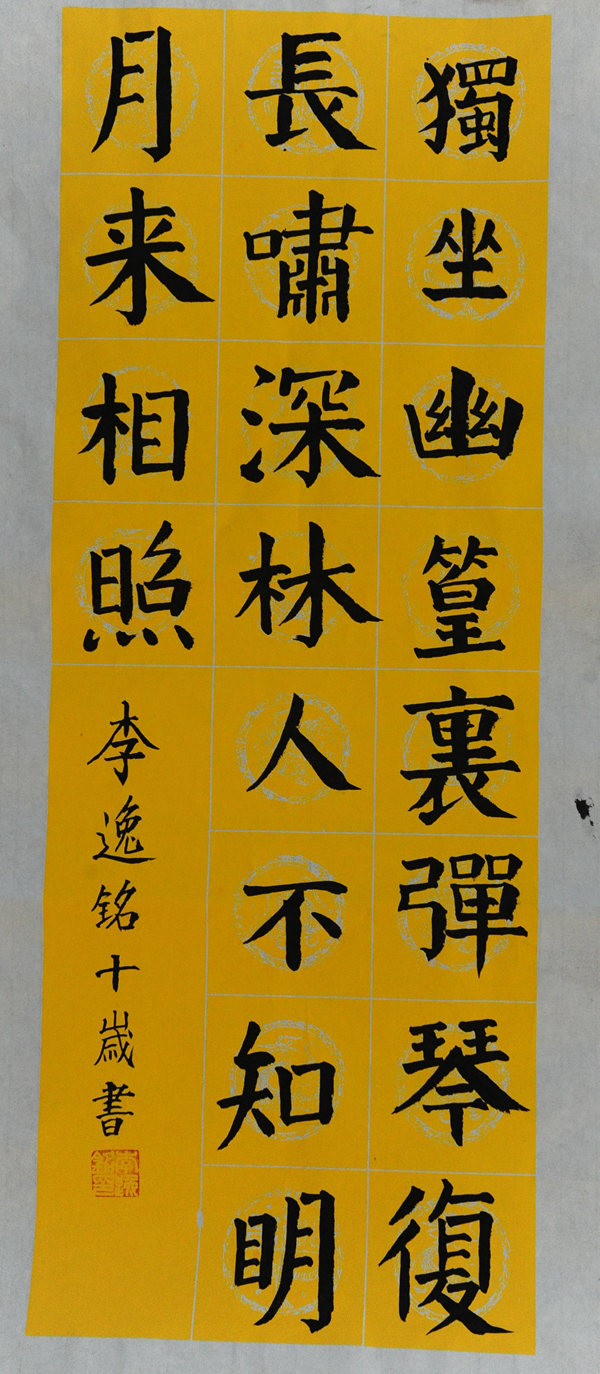 獨坐幽篁裏彈琴復
長嘯深林人不知明
月来相照
李逸銘十歲書